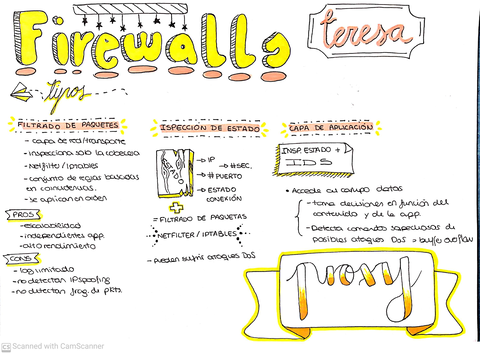 Firewalls
teresa
tipos
FILTRADO DE PAQUETES
- capa de red/transporte
- inspecciona solo la cabecera
- Netfilter/iptables
- conjunto de reglas basadas
en coincidencias.
- se aplican en orden
PROS
- escalabilidad
- independientes app.
- alto rendimiento
CONS
- log limitado
- no detectan IPspoofing
- no detectan frag. de pkts.
INSPECCIÓN DE ESTADO
→ IP
→ #SEC.
→ #PUERTO
→ ESTADO
CONEXIÓN
+
= FILTRADO DE PAQUETES
NETFILTER / IPTABLES
- pueden sufrir ataques DoS
CAPA DE APLICACIÓN
INSP. ESTADO +
IDS
• Accede al campo datos
- toma decisiones en función del
contenido y de la app.
- Detecta comandos sospechosos de
posibles ataques DoS → buffer overflow
proxy
CS Scanned with CamScanner